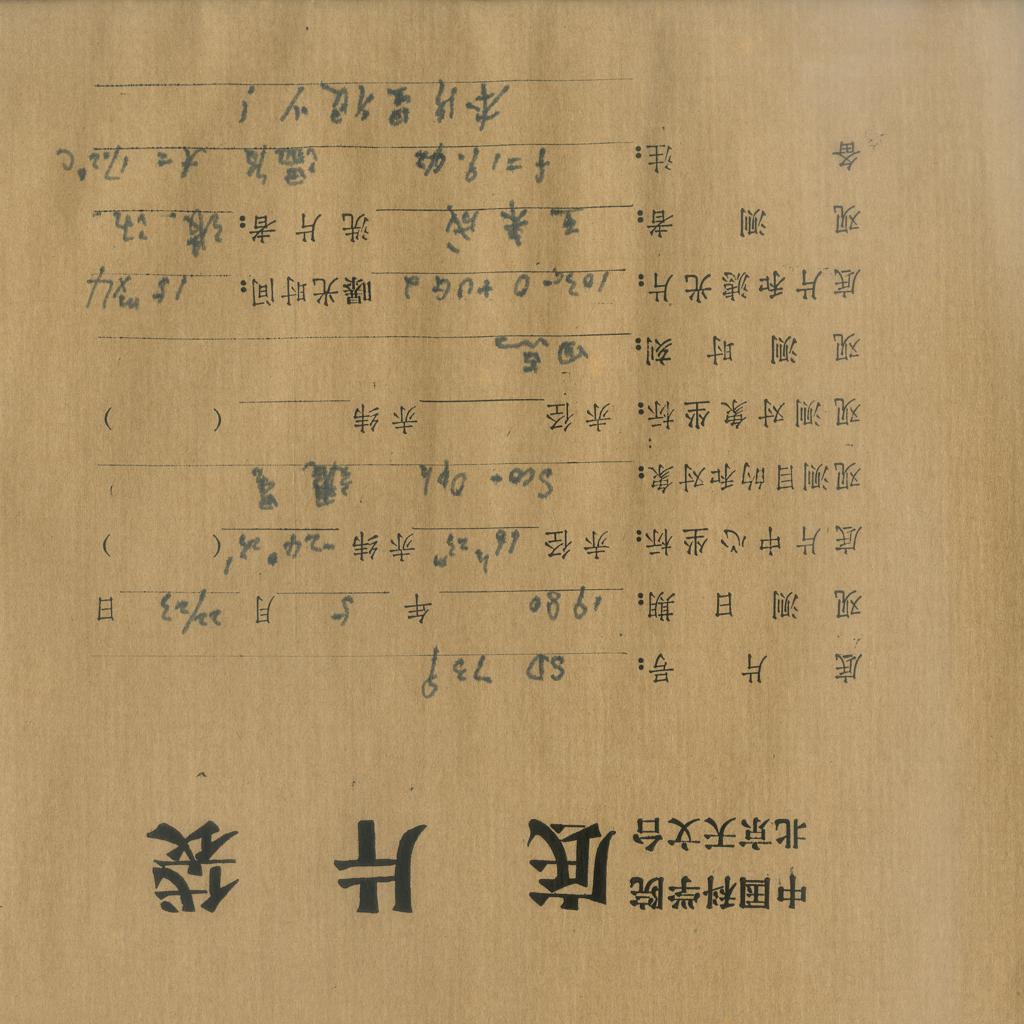 中国科学院
北京天文台 底片袋
底片号: SD 739
观测日期: 1980 年 5 月 22/23 日
底片中心坐标: 赤径 16ʰ23ᵐ 赤纬 -24°25′ ( )
观测目的和对象: Sco-Oph 星
观测对象坐标: 赤径 赤纬 ( )
观测时刻:
底片和滤光片: 103a-O+UG2 曝光时间: 15ᵐ×4
观测者: 洗片者:
备注: f=19.42 温度 t=17.2°C
本片星很少!